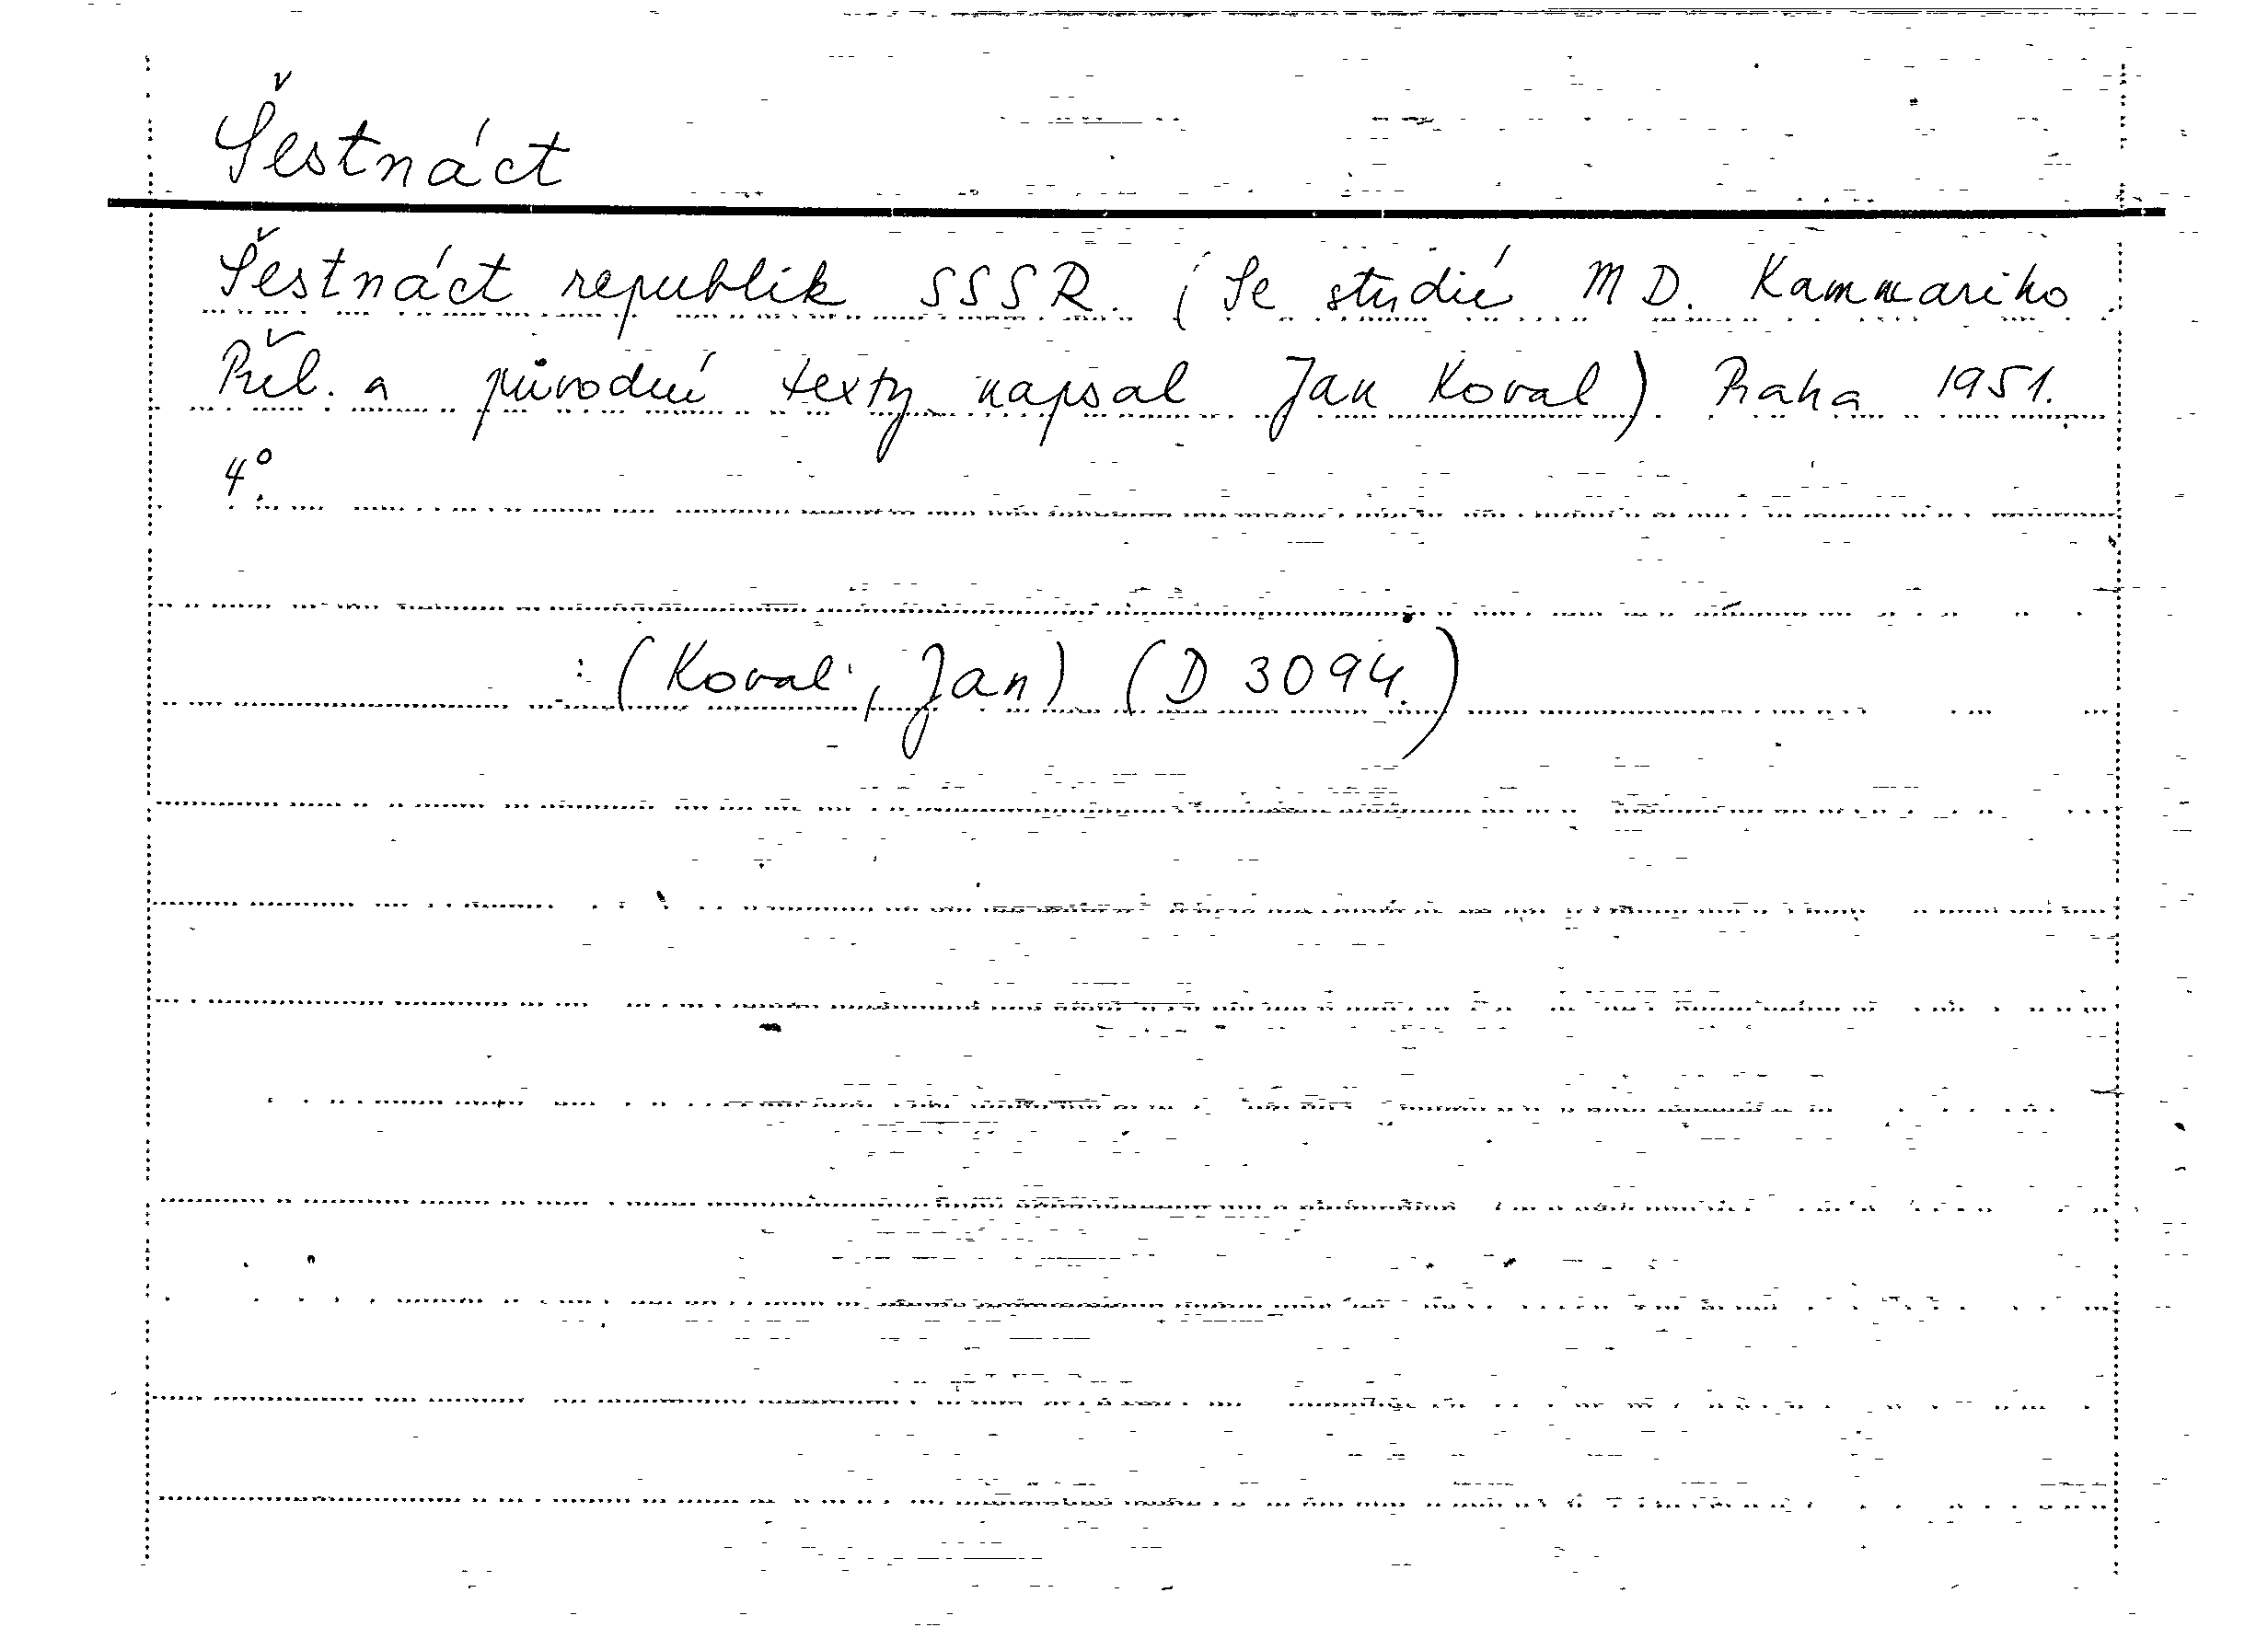 Šestnáct
Šestnáct republik SSSR. (Se studií M D. Kammariho
Přel. a původní texty napsal Jan Koval) Praha 1951.
4°.
: (Koval, Jan) (D 3094.)